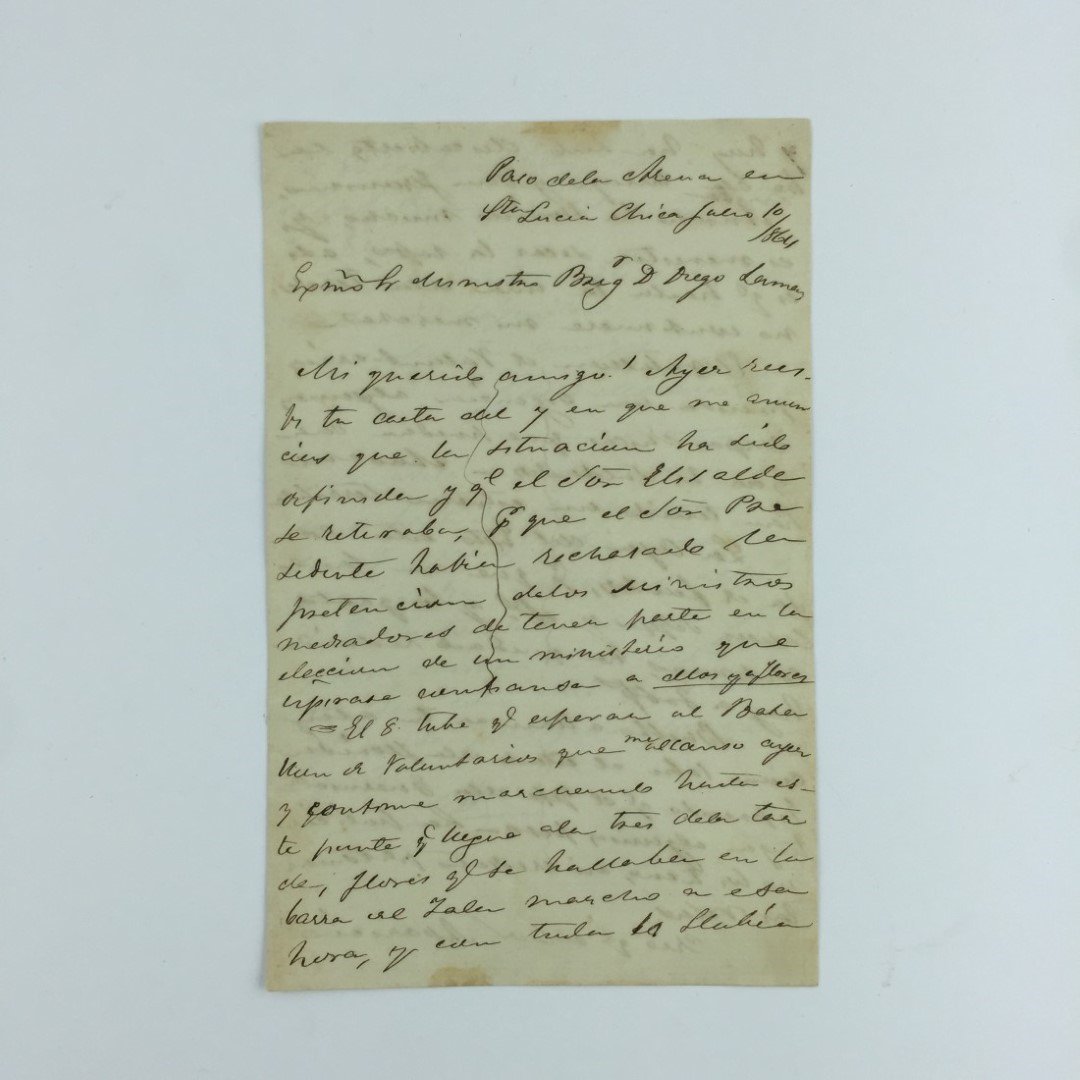 Paso dela Arena en
Sta Lucia Chica Julio 10
/864
Exmo Sr Ministro Brigr D Diego Lamas
Mi querido amigo! Ayer reci-
vi tu carta del y en que me anun
cias que la situacion ha sido
difinida y ql el Sor Elisalde
se retiraba, p que el Sor Pre
sidente habia rechasado la
pretencion delos Ministros
mediadores de tener parte en la
eleccion de un ministerio que
ispirase confiansa a ellos y a flores
= El 8 tube ql esperar al Bata
llon de Voluntarios que me alcanso ayer
y continue marchando hasta es-
te punto ql llegue ala tres dela tar
de, flores ql se hallaba en la
barra del Tala marcho a esa
hora, y con toda la lluvia